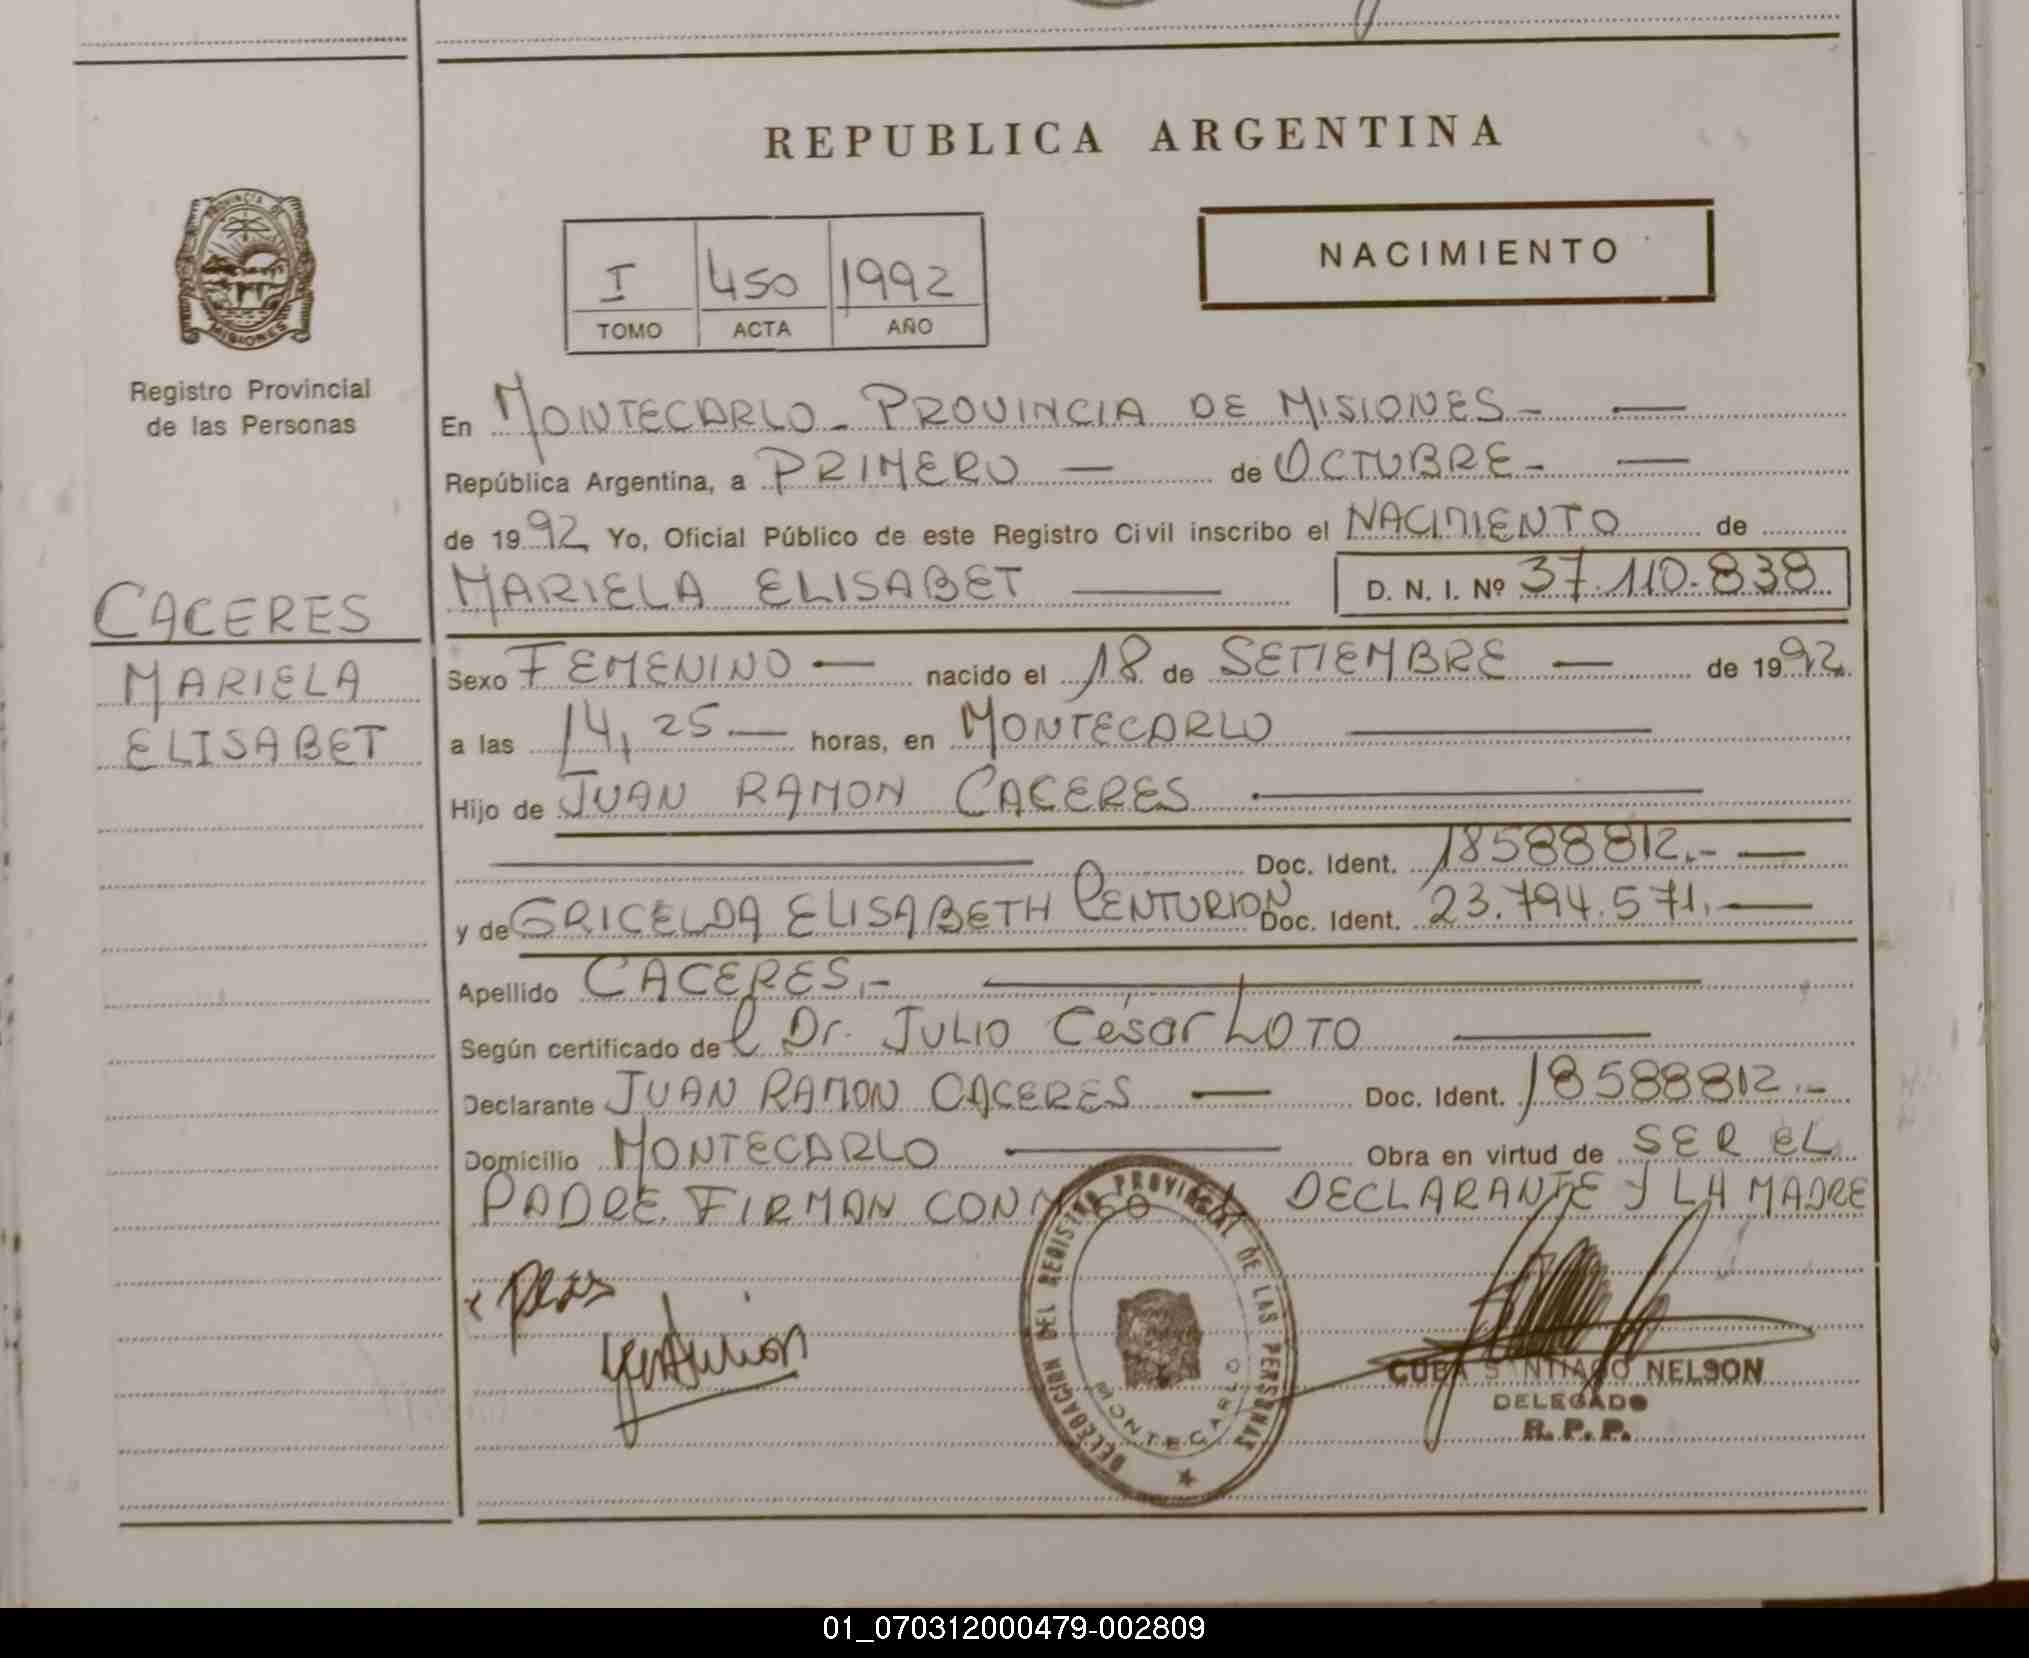 REPUBLICA ARGENTINA
PROVINCIA DE
MISIONES
Registro Provincial
de las Personas
I 450 1992
TOMO ACTA AÑO
NACIMIENTO
En MONTECARLO - PROVINCIA DE MISIONES -
República Argentina, a PRIMERO de OCTUBRE -
de 1992 Yo, Oficial Público de este Registro Civil inscribo el NACIMIENTO de
MARIELA ELISABET D. N. I. Nº 37.110.838
CACERES
MARIELA
ELISABET
Sexo FEMENINO nacido el 18 de SETIEMBRE de 1992
a las 14,25 horas, en MONTECARLO
Hijo de JUAN RAMON CACERES
Doc. Ident. 18588812.-
y de GRICELDA ELISABETH CENTURION Doc. Ident. 23.794.571.
Apellido CACERES.-
Según certificado del Dr. JULIO César LOTO
Declarante JUAN RAMON CACERES Doc. Ident. 18588812.-
Domicilio MONTECARLO Obra en virtud de SER EL
PADRE. FIRMAN CONMIGO EL DECLARANTE Y LA MADRE
DELEGACION DEL REGISTRO PROVINCIAL DE LAS PERSONAS
MONTECARLO
CUBA SANTIAGO NELSON
DELEGADO
R. P. P.
01_070312000479-002809